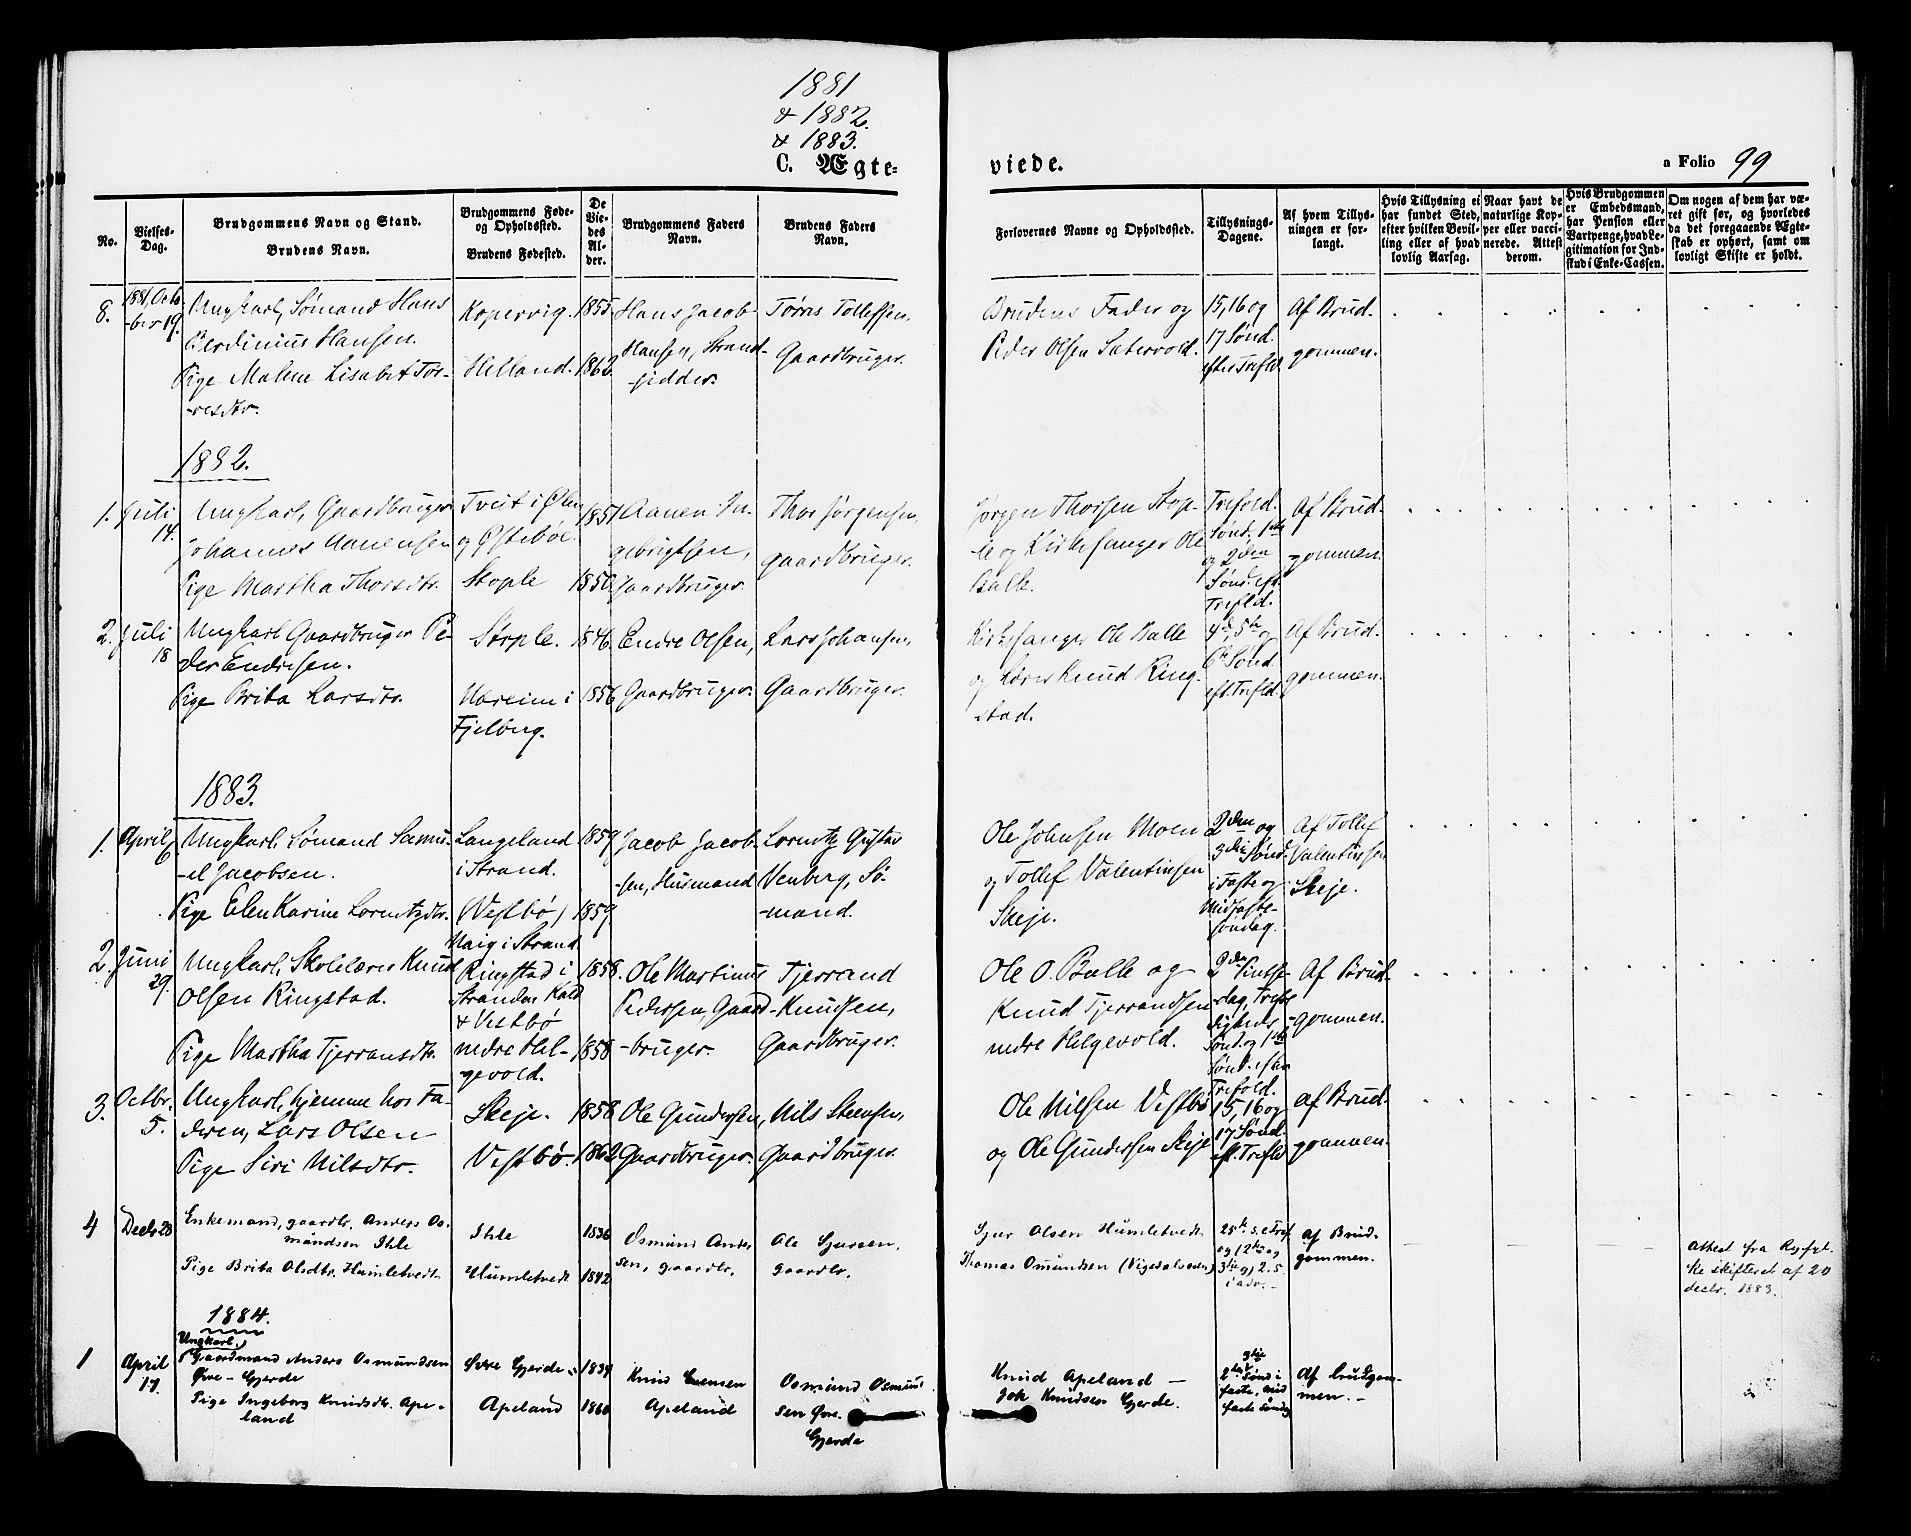 1881
& 1882.
& 1883.
C. Ægte-
viede.
a Folio 99
No.
Vielses-
Dag.
Brudgommens Navn og Stand.
Brudens Navn.
Brudgommens Føde-
og Opholdssted.
Brudens Fødested.
De
Vie-
des
Al-
der.
Brudgommens Faders
Navn.
Brudens Faders
Navn.
Forlovernes Navne og Opholdssted.
Tillysnings-
Dagene.
Af hvem Tillys-
ningen er for-
langt.
Hvis Tillysning ei
har fundet Sted,
efter hvilken Bevil-
ling eller af hvad
lovlig Aarsag.
Naar havt de
naturlige Kop-
per eller vacci-
nerede. Attest
derom.
Hvis Brudgommen
er Embedsmand,
har Pension eller
Vartpenge, hvad Le-
gitimation for Ind-
skud i Enke-Cassen.
Om nogen af dem har væ-
ret gift før, og hvorledes
da det foregaaende Ægte-
skab er ophørt, samt om
lovligt Skifte er holdt.
8.
1881, Octo-
-ber 19.
Ungkarl, Sømand Hans
Berdinius Hansen.
Pige Malene Lisabet Tør-
-resdtr.
Kopervig.
Helland.
1855
1862
Hans Jacob
Hansen, Strand-
-sidder.
Tørres Tollefsen,
Gaardbruger.
Brudens Fader og
Peder Olsen Satervold.
15, 16 og
17 Sønd.
efter Trefld.
Af Brud-
gommen.
1882.
1.
Juli
14.
Ungkarl, Gaardbruger
Johannes Aanensen
Pige Martha Thorsdtr.
Tveit i Ølen
og Østebøe.
Stople
1851
1850
Aanen In-
gebrigtsen,
Gaardbruger.
Thor Jørgensen,
gaardbruger.
Jørgen Thorsen Stop-
le og Kirkesanger Ole
Balle.
Trefold.
Sønd. 1ste
og 2den
Sønd. eft.
Trefld.
Af Brud-
gommen.
2.
Juli
18
Ungkarl Gaardbruger Pe-
der Endresen.
Pige Brita Larsdtr.
Stople.
Næreim i
Fjelberg.
1846
1856
Endre Olsen,
Gaardbruger.
Lars Johansen,
Gaardbruger.
Kirkesanger Ole Balle
og Lærer Knud Ring-
stad.
4de, 5te og
6te Sønd.
eft. Trefld.
Af Brud-
gommen.
1883.
1.
April
6.
Ungkarl, Sømand Samu-
-el Jacobsen.
Pige Elen Karine Lorentzdtr.
Langeland
i Strand.
(Vestbø)
1859
1859
Jacob Jacob-
-sen, Husmand
Lorentz Gustav
Venberg, Sø-
-mand.
Ole Johnsen Moen
og Tollef Valentinsen
Skeje.
2den og
3die Sønd.
i Faste og
Midfaste-
søndag.
Af Tollef
Valentinsen
Skeje.
2.
Juni
29.
Ungkarl, Skolelærer Knud
Olsen Ringstad.
Pige Martha Tjerransdtr.
Ringstad i
Stranden Kald
& Vestbø
nedre Hel-
gevold.
1858.
1858
Ole Martinus
Pedersen, Gaard-
-bruger.
Tjerrand
Knudsen,
Gaardbruger.
Ole O. Balle og
Knud Tjerrandsen
nedre Helgevold.
2den Pintse-
-dag, Trefol-
digheds
Sønd. og 1ste
Sønd. efter
Trefold.
Af Brud-
-gommen.
3.
Octbr.
5.
Ungkarl, hjemme hos Fa-
deren, Lars Olsen
Pige Siri Nilsdtr.
Skeje.
Vestbø.
1858
1862
Ole Gundersen,
Gaardbruger.
Nils Steensen,
Gaardbruger.
Ole Nilsen Vestbø
og Ole Gundersen Skeje
15, 16 og
17 Sønd.
eft. Trefld
Af Brud-
gommen.
4
Decbr 28
Enkemand, gaardbr. Anders Os-
mundsen Ihle
Pige Brita Olsdtr. Humletvedt
Ihle
Humletvedt
1836
1842
Osmund Ander-
sen, gaardbr.
Ole Sjursen,
gaardbr.
Sjur Olsen Humletvedt
Thomas Omundsen (Vigedalsøen)
25de S. e Tref
og
i adv. -
Af Brud-
gommen.
Attest fra Ryfyl-
ke skifteret af 20
decbr. 1883.
1884.
1
April
17.
Ungkarl,
Gaardmand Anders Osmundsen
Øvre-Gjerde
Pige Ingeborg Knudsdtr. Ape-
land
Øvre Gjerde
Apeland
1839
1860
Knud
Apeland
Osmund Osmund-
sen Øvre-
Gjerde
Knud Apeland -
Joh Knudsen Gjerde.
3die
2den Sønd i
faste, mid
faste Søndag
Af brudgom-
men. -